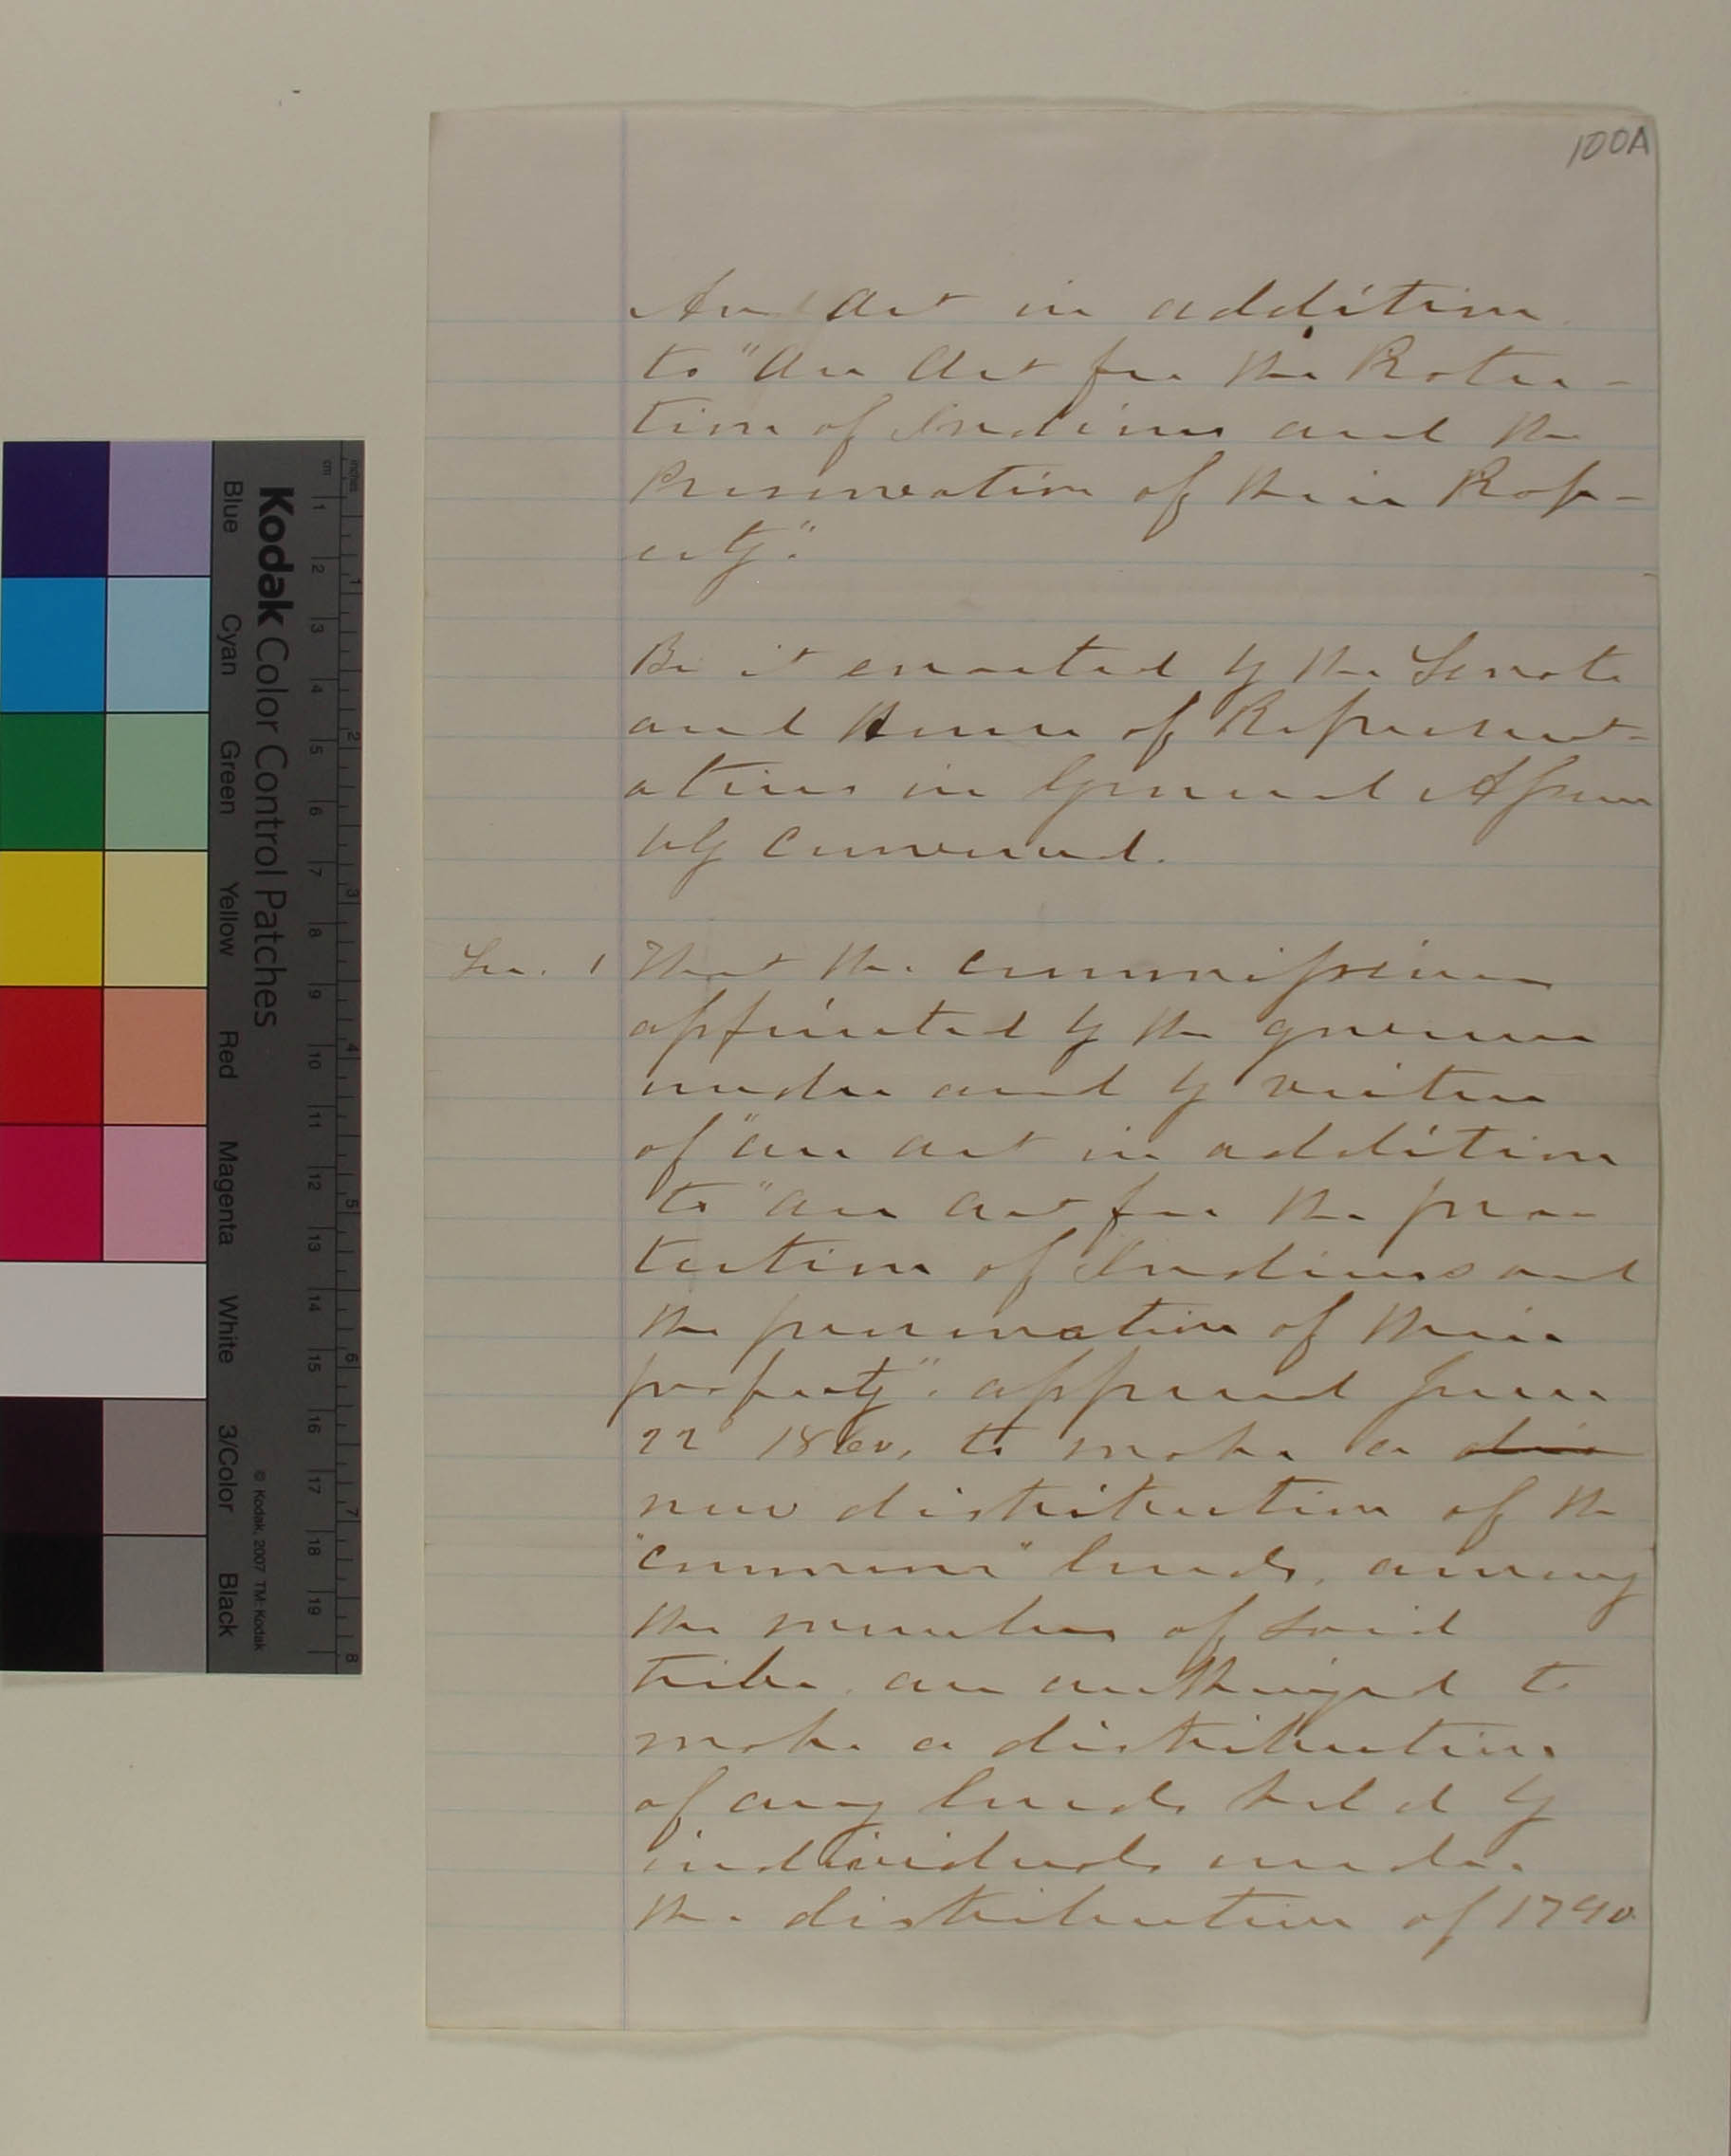 100A
An Act in addition
to "An Act for the Protec-
tion of Indians and the
Preservation of their Prop-
erty."
Be it enacted by the Senate
and House of Represent-
atives in General Assem
bly convened.
Sec. 1 That the commissioners
appointed by the governor
under and by virtue
of "an act in addition
to "an act for the pro
tection of Indians and
the preservation of their
property". approved June
22 1860, to make a
new distribution of the
"common" lands, among
the members of said
tribe, are authorized to
make a distribution
of any lands held by
individuals under
the distribution of 1790
Kodak Color Control Patches
Blue Cyan Green Yellow Red Magenta White 3/Color Black
© Kodak, 2007 TM: Kodak
cm 1 2 3 4 5 6 7 8 9 10 11 12 13 14 15 16 17 18 19
inches 1 2 3 4 5 6 7 8